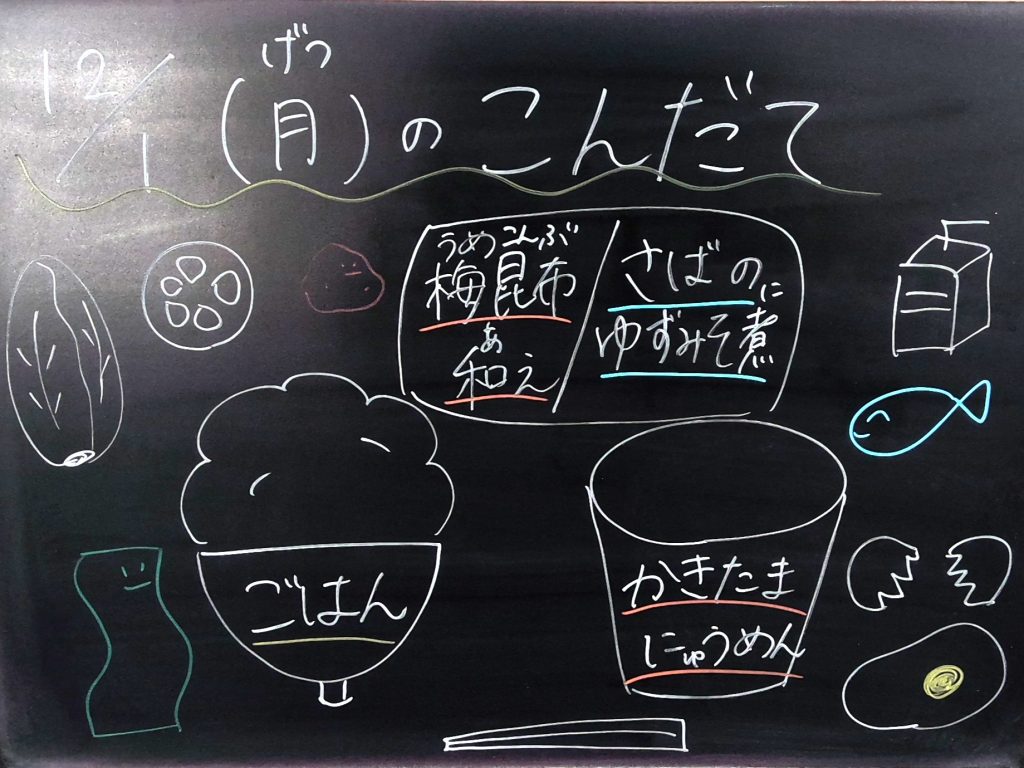 げつ
12/1(月)のこんだて
うめこんぶ
梅昆布
あ
和え
さばの
に
ゆずみそ煮
ごはん
かきたま
にゅうめん